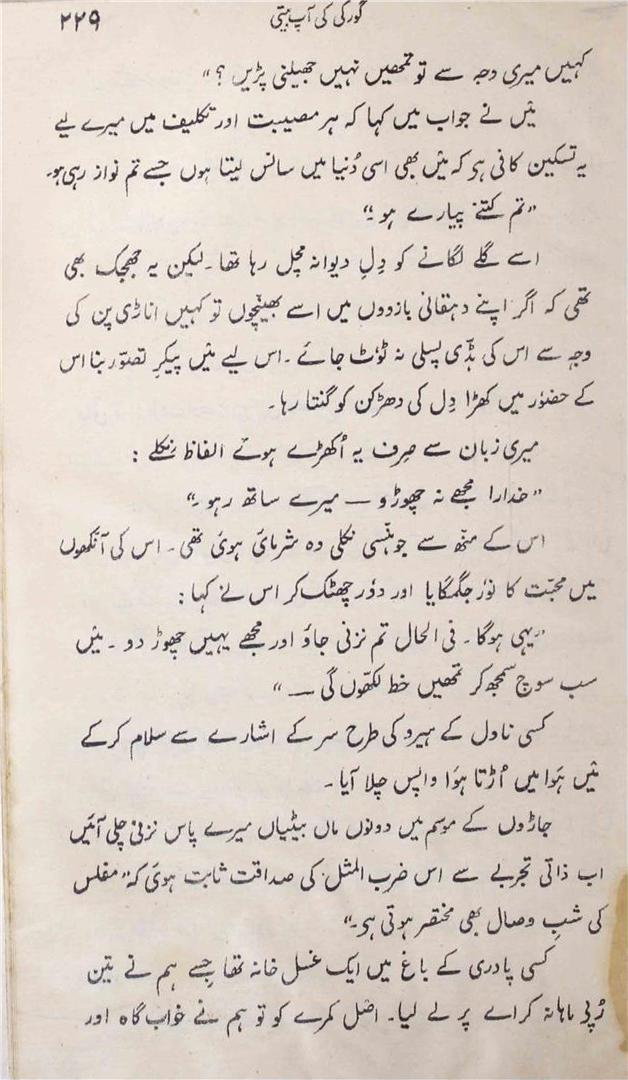 گورکی کی آپ بیتی ۲۲۹
کہیں میری وجہ سے تو تمھیں نہیں جھیلنی پڑیں ؟"
میں نے جواب میں کہا کہ ہر مصیبت اور تکلیف میں میرے لیے
یہ تسکین کافی ہی کہ میں بھی اسی دُنیا میں سانس لیتا ہوں جسے تم نواز رہی ہو۔
"تم کتنے پیارے ہو۔"
اسے گلے لگانے کو دِلِ دیوانہ مچل رہا تھا۔ لیکن یہ جھجک بھی
تھی کہ اگر اپنے دہقانی بازووں میں اسے بھینچوں تو کہیں اناڑی پن کی
وجہ سے اس کی ہڈّی پسلی نہ ٹوٹ جائے۔ اس لیے میں پیکرِ تصوّر بنا اس
کے حضوٗر میں کھڑا دِل کی دھڑکن کو گنتا رہا۔
میری زبان سے صِرف یہ اُکھڑے ہوئے الفاظ نکلے :
"خدارا مجھے نہ چھوڑو — میرے ساتھ رہو۔"
اس کے منھ سے جو ہنسی نکلی وہ شرمائ ہوئ تھی۔ اس کی آنکھوں
میں محبّت کا نوٗر جگمگایا اور دوٗر چھٹک کر اس نے کہا :
"یہی ہوگا۔ فی الحال تم نزنی جاؤ اور مجھے یہیں چھوڑ دو۔ میں
سب سوچ سمجھ کر تمھیں خط لکھوں گی — "
کسی ناول کے ہیرو کی طرح سر کے اشارے سے سلام کرکے
میں ہَوا میں اُڑتا ہوَا واپس چلا آیا۔
جاڑوں کے موسم میں دونوں ماں بیٹیاں میرے پاس نزنی چلی آئیں
اب ذاتی تجربے سے اس ضرب المثل کی صداقت ثابت ہوئ کہ "مفلس
کی شبِ وصال بھی مختصر ہوتی ہی۔"
کسی پادری کے باغ میں ایک غسل خانہ تھا جِسے ہم نے تین
رُپی ماہانہ کراے پر لے لیا۔ اصل کمرے کو تو ہم نے خواب گاہ اور